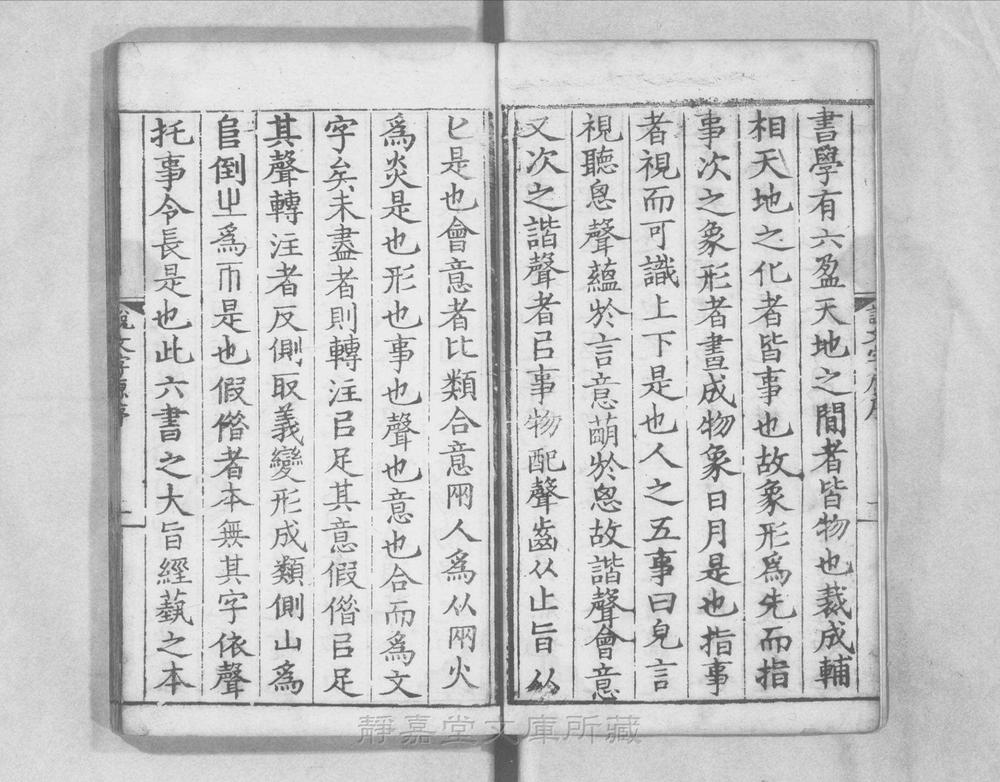 書學有六盈天地之間者皆物也裁成輔
相天地之化者皆事也故象形爲先而指
事次之象形者畫成物象日月是也指事
者視而可識上下是也人之五事曰皃言
視聽恖聲蘊於言意萌於恖故諧聲會意
又次之諧聲者㠯事物配聲齒从止旨从
匕是也會意者比類合意兩人爲从兩火
爲炎是也形也事也聲也意也合而爲文
字矣未盡者則轉注㠯足其意假借㠯足
其聲轉注者反側取義變形成類側山爲
𨸏倒㞢爲帀是也假借者本無其字依聲
托事令長是也此六書之大旨經蓺之本
說文字原序
靜嘉堂文庫所藏